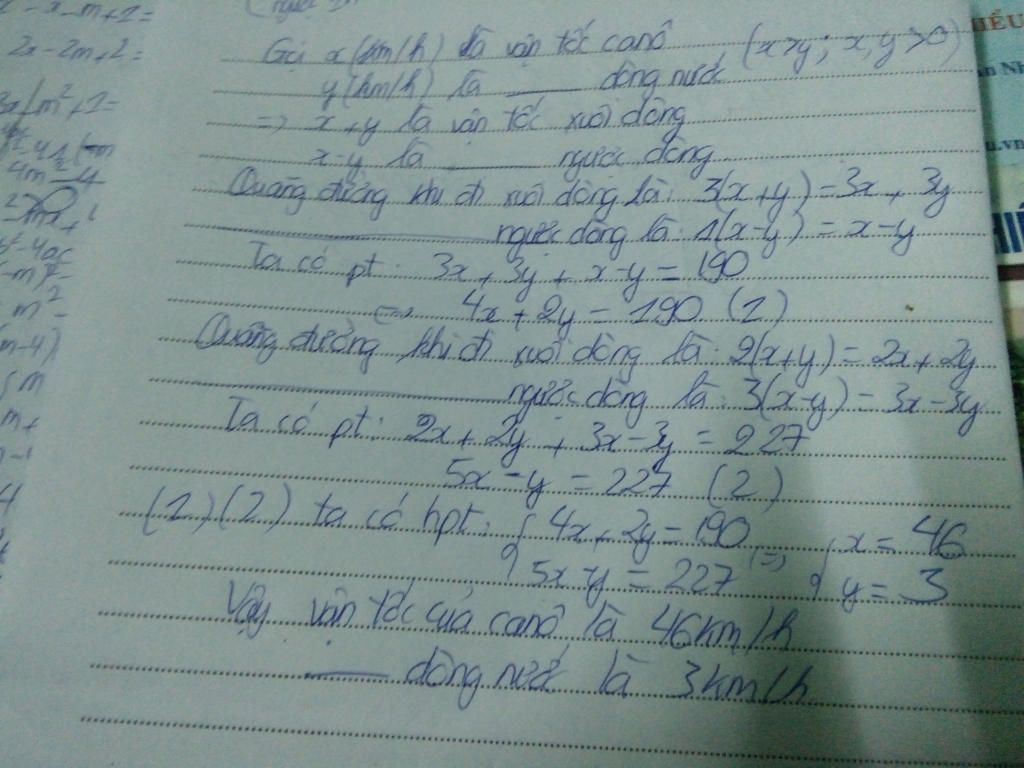 x - m + 1 =
2x - 2m + 2 =
m² + 1 =
4m - 4
- 4ac
m² -
m - 4)
m
m +
4
(người
Gọi x (km/h) là vận tốc canô (x > y; x, y > 0)
y (km/h) là ___ dòng nước
=> x + y là vận tốc xuôi dòng
x - y là ___ ngược dòng
Quãng đường khi đi xuôi dòng là: 3(x + y) = 3x + 3y
___ ngược dòng là: 1(x - y) = x - y
Ta có pt: 3x + 3y + x - y = 190
<=> 4x + 2y = 190 (1)
Quãng đường khi đi xuôi dòng là: 2(x + y) = 2x + 2y
___ ngược dòng là: 3(x - y) = 3x - 3y
Ta có pt: 2x + 2y + 3x - 3y = 227
5x - y = 227 (2)
(1) (2) ta có hpt: { 4x + 2y = 190 <=> { x = 46
{ 5x - y = 227 { y = 3
Vậy vận tốc của canô là 46 km/h
___ dòng nước là 3 km/h
HIẾU
n Nh
u.vn